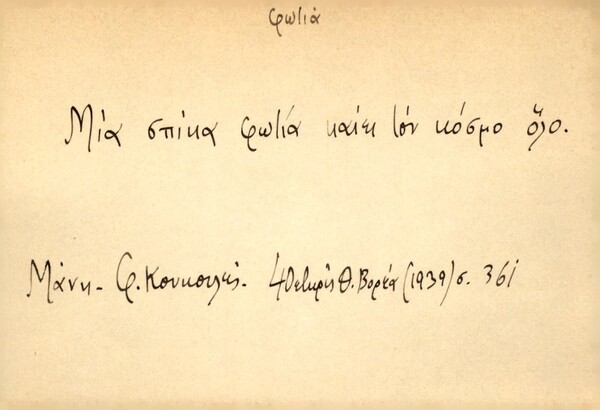 φωτιά
Μία σπίκα φωτιά καίει τόν κόσμο ὅλο.
Μάνη - Φ. Κουκουλές. 40ετηρίς Θ. Βορέα (1939) σ. 361